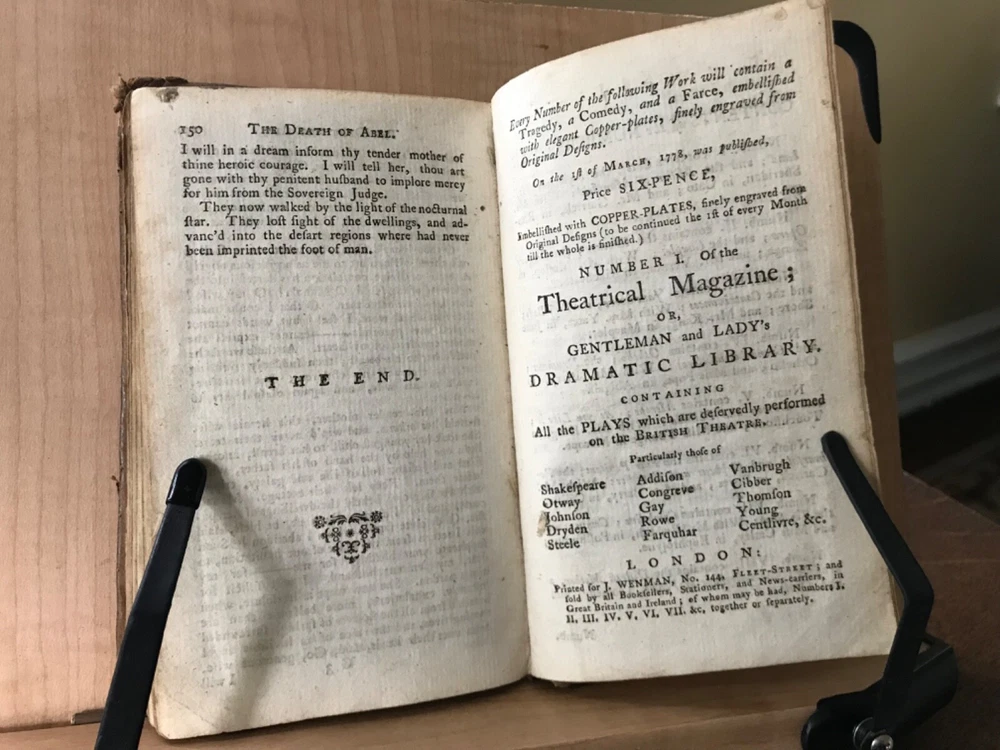 150 THE DEATH OF ABEL.
I will in a dream inform thy tender mother of
thine heroic courage. I will tell her, thou art
gone with thy penitent huſband to implore mercy
for him from the Sovereign Judge.
They now walked by the light of the nocturnal
ſtar. They loſt ſight of the dwellings, and ad-
vanc'd into the deſart regions where had never
been imprinted the foot of man.
THE END.
Every Number of the following Work will contain a
Tragedy, a Comedy, and a Farce, embelliſhed
with elegant Copper-plates, finely engraved from
Original Deſigns.
On the 1ſt of MARCH, 1778, was publiſhed,
Price SIX-PENCE,
Embelliſhed with COPPER-PLATES, finely engraved from
Original Deſigns (to be continued the 1ſt of every Month
till the whole is finiſhed.)
NUMBER I. Of the
Theatrical Magazine;
OR,
GENTLEMAN and LADY's
DRAMATIC LIBRARY.
CONTAINING
All the PLAYS which are deſervedly performed
on the BRITISH THEATRE.
Particularly thoſe of
Shakeſpeare Addiſon Vanbrugh
Otway Congreve Cibber
Johnſon Gay Thomſon
Dryden Rowe Young
Steele Farquhar Centlivre, &c.
LONDON:
Printed for J. WENMAN, No. 144, FLEET-STREET; and
ſold by all Bookſellers, Stationers, and News-carriers, in
Great Britain and Ireland; of whom may be had, Numbers I.
II, III. IV. V, VI, VII. &c, together or ſeparately.